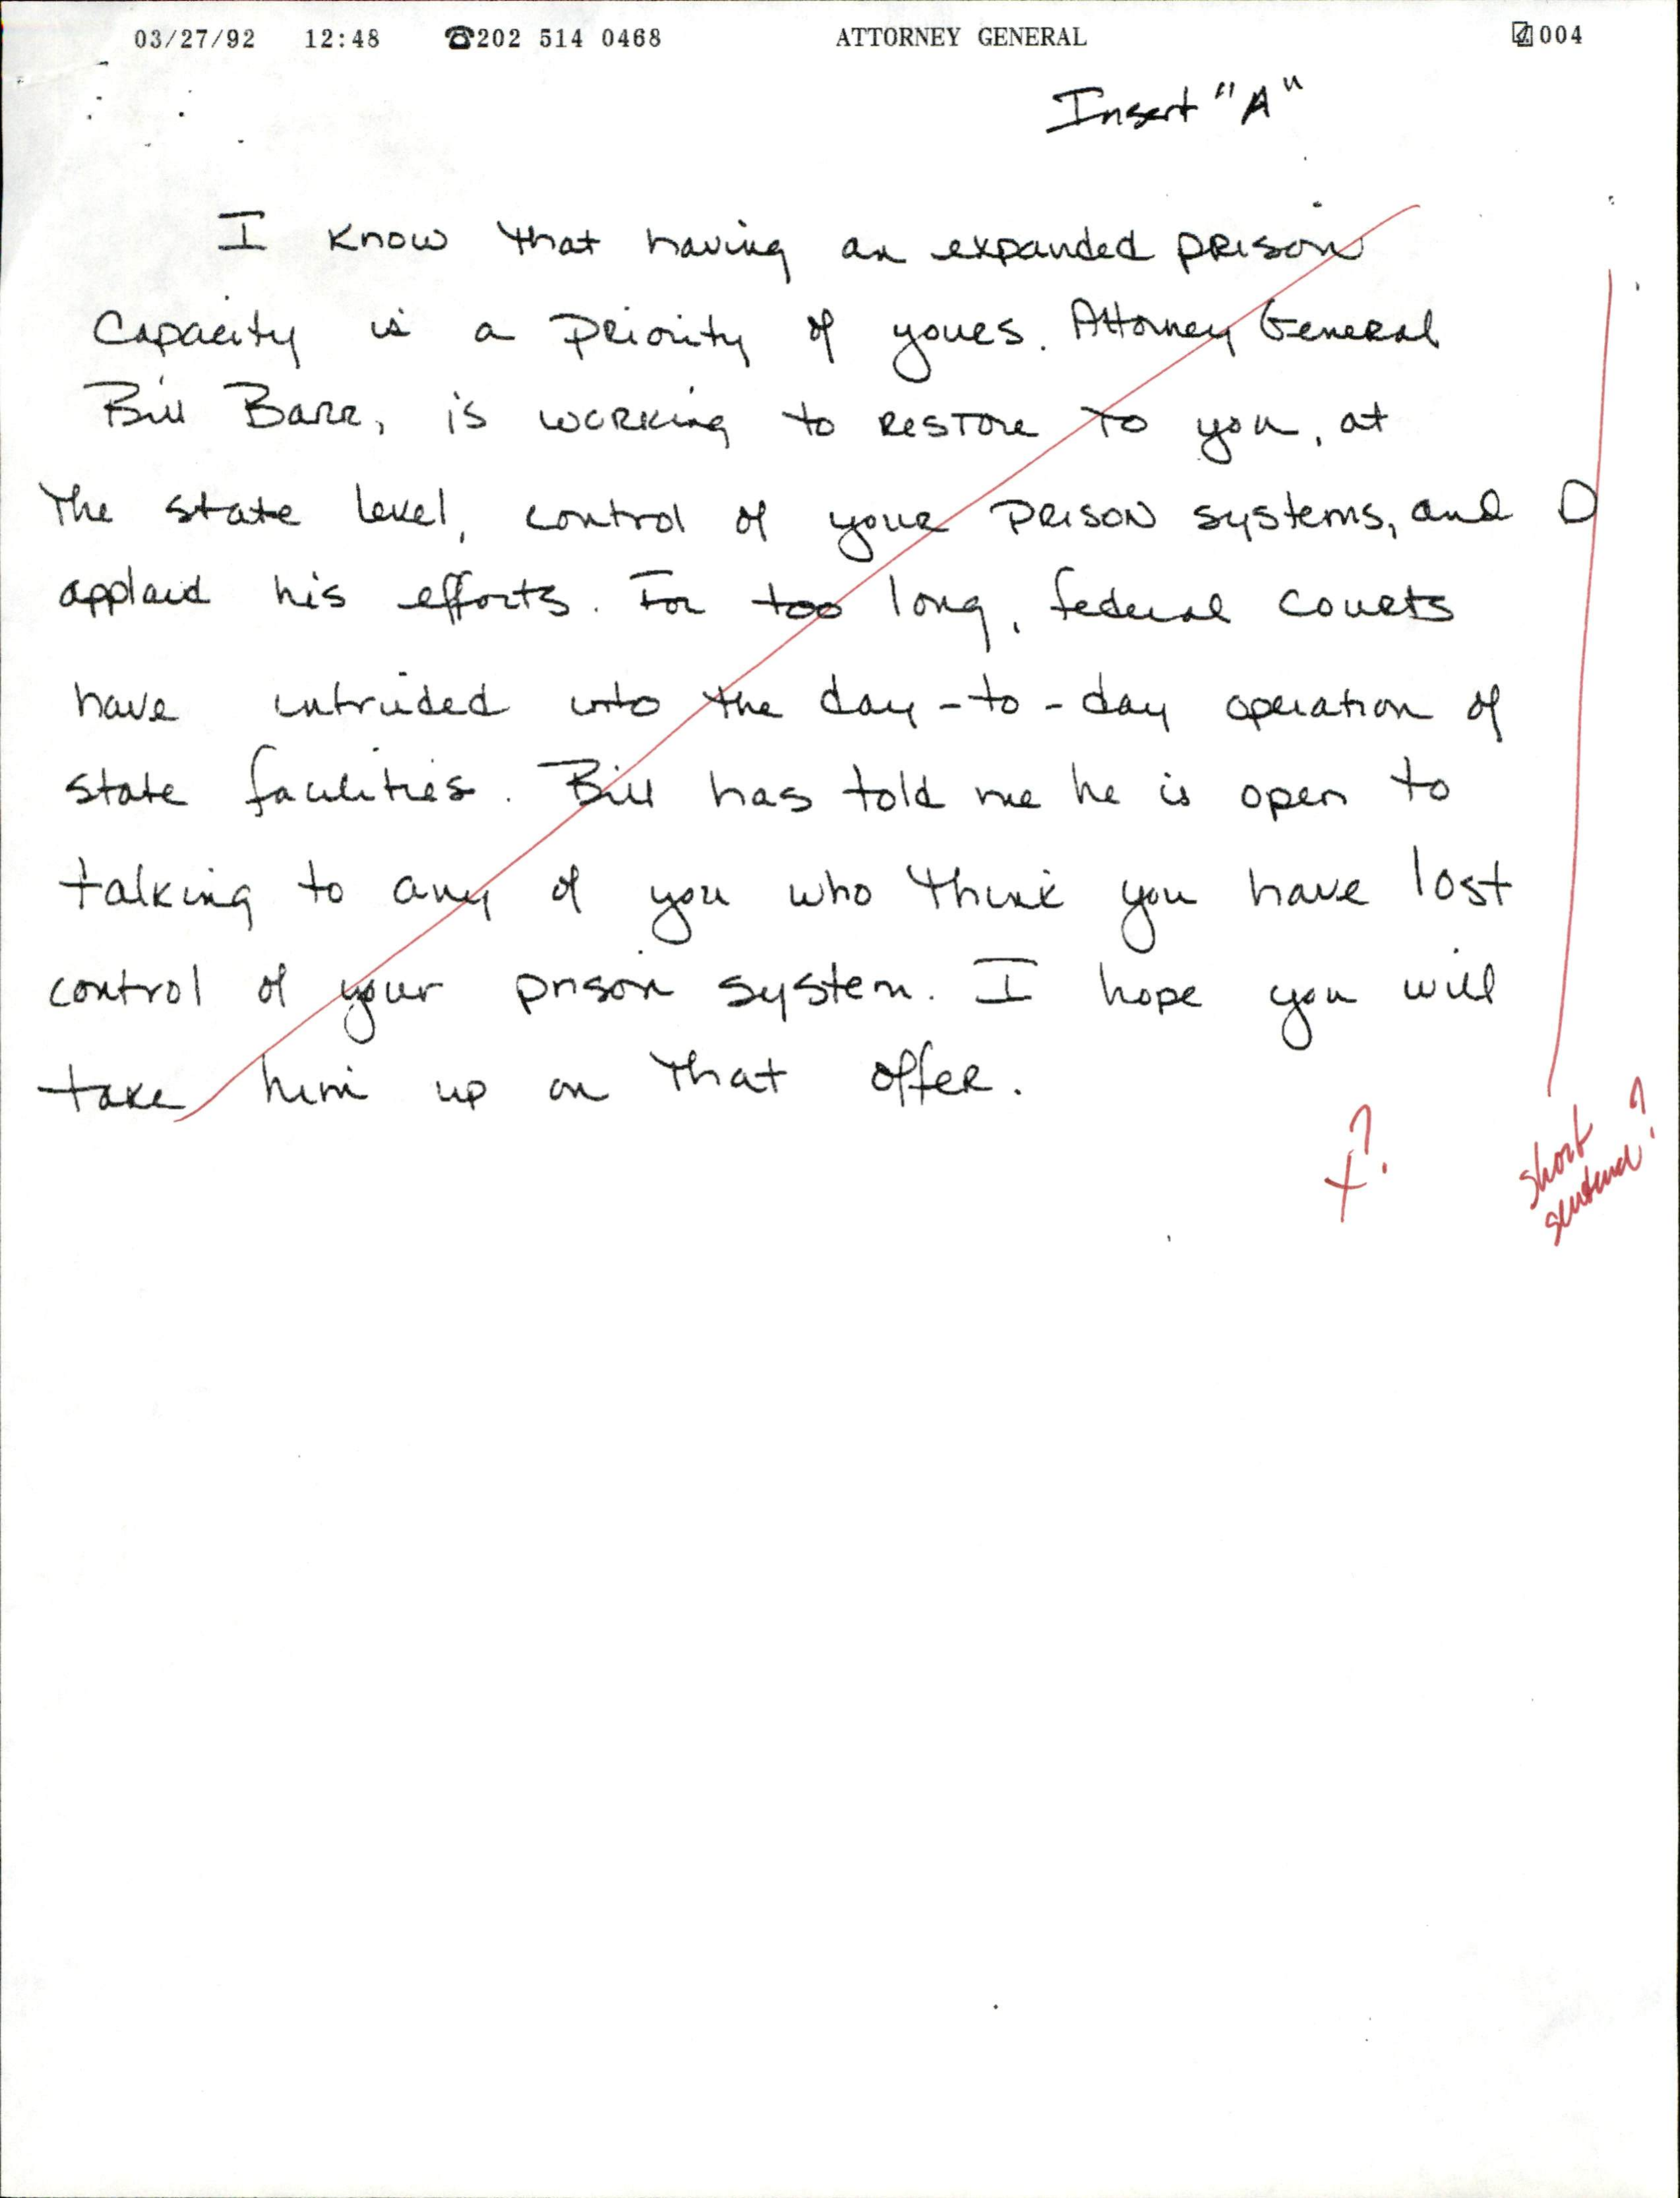 03/27/92 12:48 ☎202 514 0468 ATTORNEY GENERAL 004
Insert "A"
I know that having an expanded prison
Capacity is a Priority of yours. Attorney General
Bill Barr, is working to restore to you, at
the state level, control of your prison systems, and I
applaud his efforts. For too long, federal courts
have intruded into the day-to-day operation of
state facilities. Bill has told me he is open to
talking to any of you who think you have lost
control of your prison system. I hope you will
take him up on that offer.
?
short ?
sentence